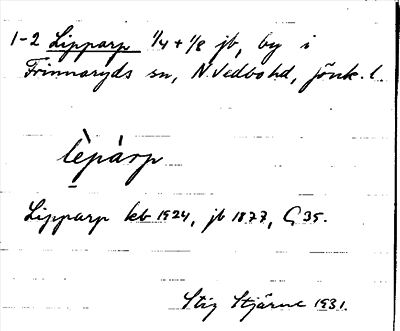 1-2 Lipparp 1/4 + 1/8 jb, by i
Frinnaryds sn, N. Vedbo hd, Jönk. l.
lèpàrp
Lipparp kb 1924, jb 1877, G 35.
Stig Stjärne 1931.